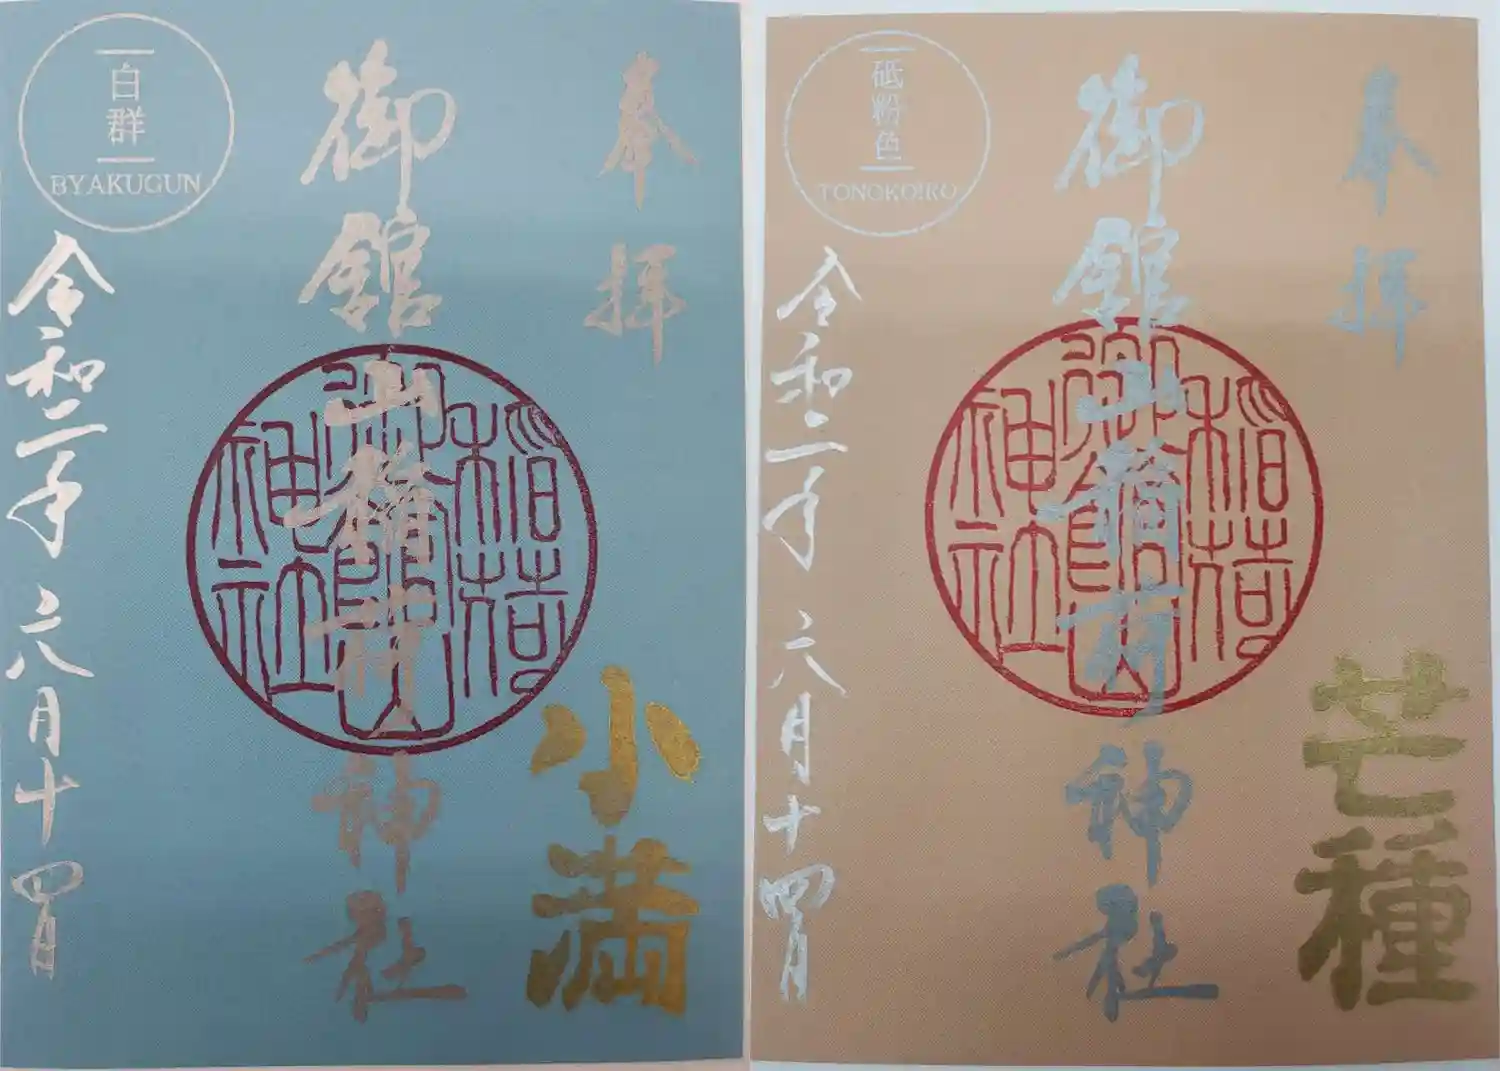 奉拝
御館山稲荷神社
小満
白群
BYAKUGUN
令和二年六月十四日
稲荷
御館山
神社
奉拝
御館山稲荷神社
芒種
砥粉色
TONOKOIRO
令和二年六月十四日
稲荷
御館山
神社